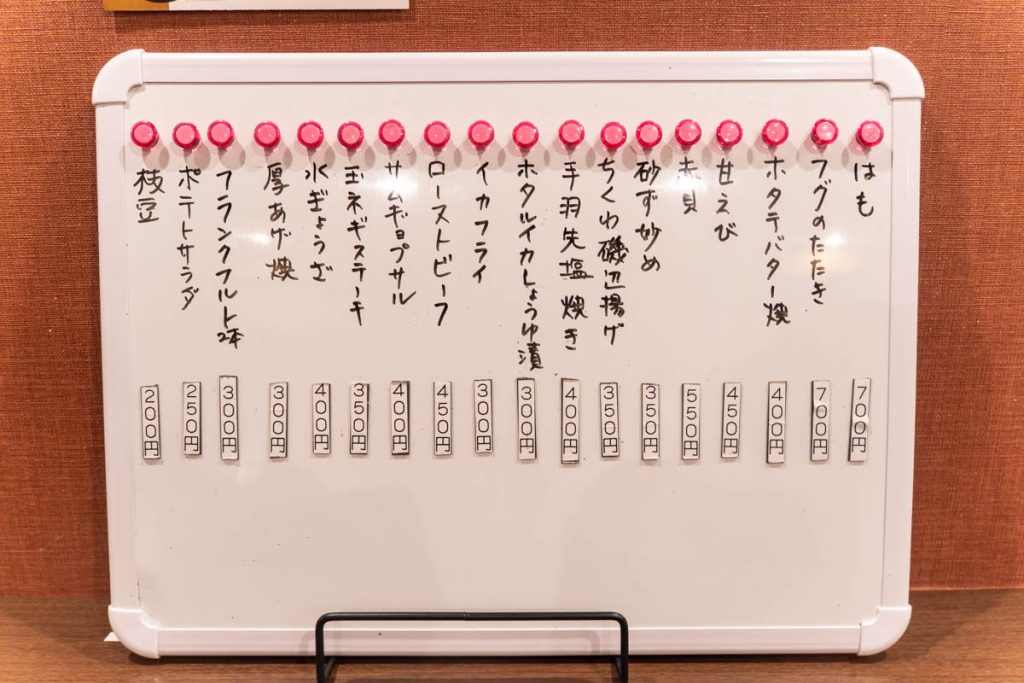 はも 700円
フグのたたき 700円
ホタテバター焼 400円
甘えび 450円
赤貝 550円
砂ず炒め 350円
ちくわ磯辺揚げ 350円
手羽先塩焼き 400円
ホタルイカしょうゆ漬 300円
イカフライ 300円
ローストビーフ 450円
サムギョプサル 400円
玉ネギステーキ 350円
水ぎょうざ 400円
厚あげ焼 300円
フランクフルト2本 300円
ポテトサラダ 250円
枝豆 200円